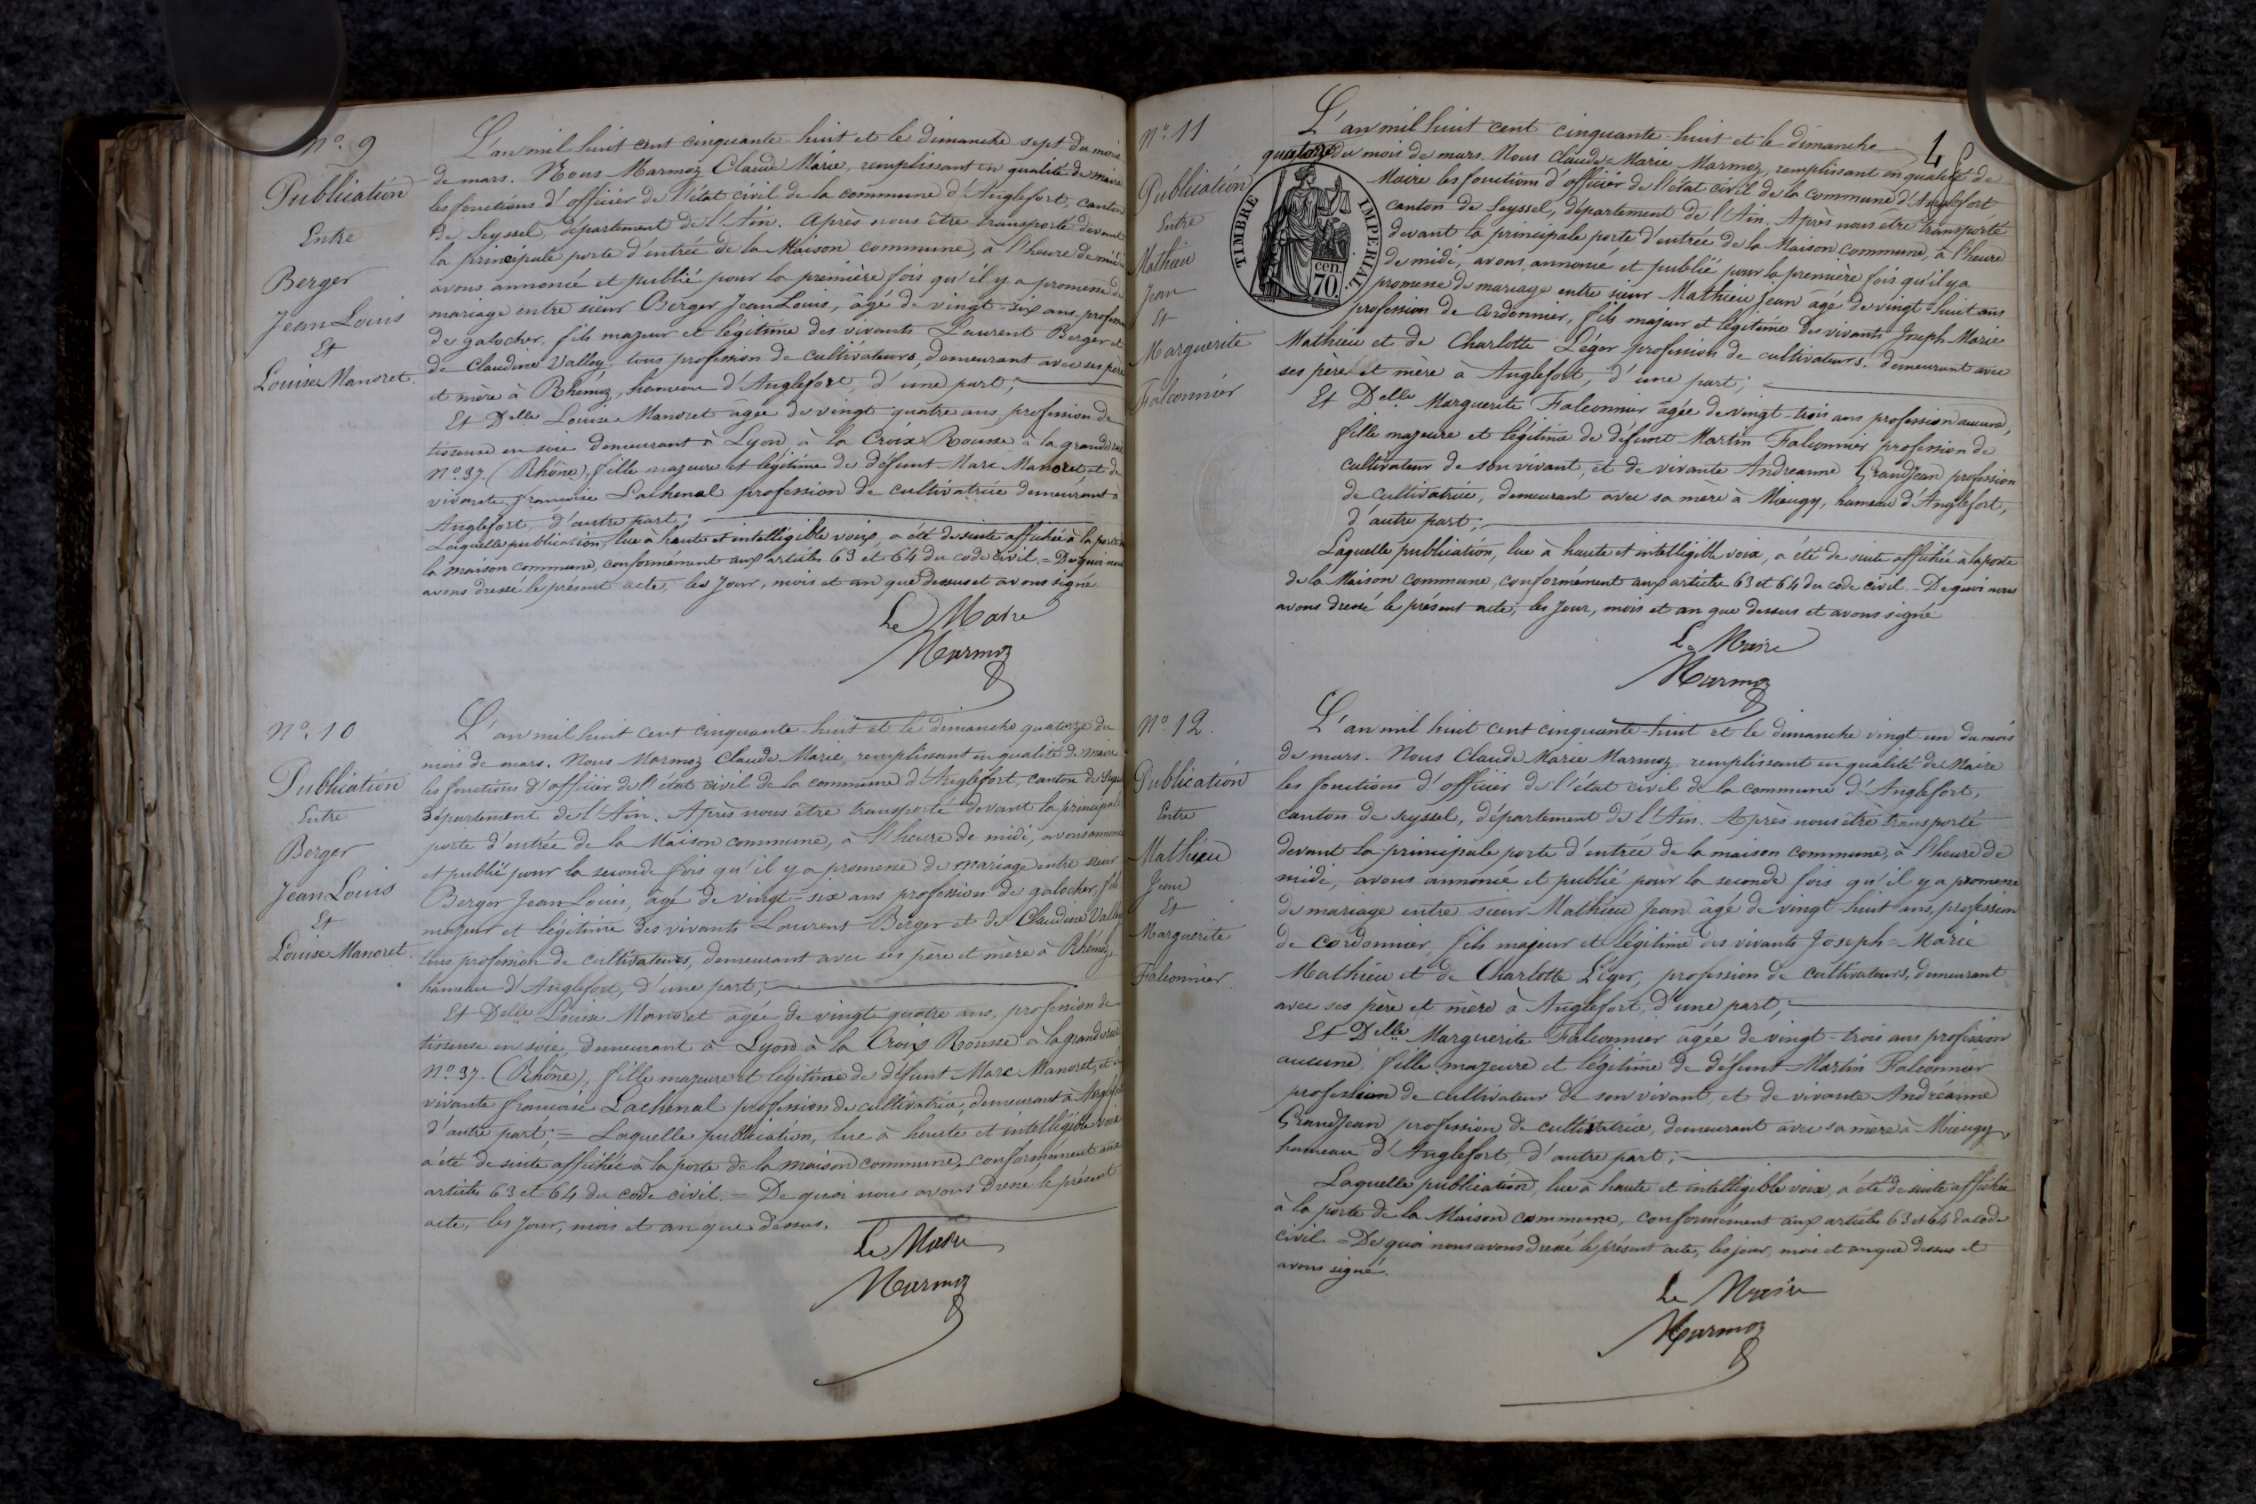 N.o 9
Publication
Entre
Berger
Jean Louis
Et
Louise Manoret.
L'an mil huit cent cinquante-huit et le dimanche sept du mois
de mars. Nous Marmoz Claude Marie, remplissant en qualité de maire
les fonctions d'officier de l'état civil de la commune d'Anglefort, canton
de Seyssel, département de l'Ain. Après nous être transporté devant
la principale porte d'entrée de la Maison commune, à l'heure de midi
avons annoncé et publié pour la première fois qu'il y a promesse de
mariage entre sieur Berger Jean Louis, âgé de vingt-six ans, profession
de galocher, fils majeur et légitime des vivants Laurent Berger et
de Claudine Valley, tous profession de cultivateurs, demeurant avec ses père
et mère à Rhémoz, hameau d'Anglefort, d'une part;
Et Delle Louise Manoret âgée de vingt quatre ans, profession de
tisseuse en soie demeurant à Lyon à la Croix Rousse à la grande rue
N.o 37. (Rhône), fille majeure et légitime de défunt Marc Manoret et de
vivante françoise Lachenal profession de cultivatrice demeurant à
Anglefort, d'autre part;
Laquelle publication, lue à haute et intelligible voix, a été de suite affichée à la porte de
la maison commune, conformément aux articles 63 et 64 du code civil. = De quoi nous
avons dressé le présent acte, les jour, mois et an que dessus et avons signé
Le Maire
Marmoz
N.o 10
Publication
Entre
Berger
Jean Louis
Et
Louise Manoret.
L'an mil huit cent cinquante-huit et le dimanche quatorze du
mois de mars. Nous Marmoz Claude Marie, remplissant en qualité de maire
les fonctions d'officier de l'état civil de la commune d'Anglefort, canton de Seyssel,
département de l'Ain. Après nous être transporté devant la principale
porte d'entrée de la Maison commune, à l'heure de midi, avons annoncé
et publié pour la seconde fois qu'il y a promesse de mariage entre sieur
Berger Jean Louis, âgé de vingt-six ans profession de galocher, fils
majeur et légitime des vivants Laurent Berger et de Claudine Valley
tous profession de cultivateurs, demeurant avec ses père et mère à Rhémoz,
hameau d'Anglefort, d'une part;
Et Delle Louise Manoret âgée de vingt quatre ans, profession de
tisseuse en soie, demeurant à Lyon à la Croix Rousse à la grande rue
N.o 37. (Rhône), fille majeure et légitime de défunt Marc Manoret, et de
vivante françoise Lachenal profession de cultivatrice, demeurant à Anglefort
d'autre part; = Laquelle publication, lue à haute et intelligible voix
a été de suite affichée à la porte de la maison commune, conformément aux
articles 63 et 64 du code civil. = De quoi nous avons dressé le présent
acte, les jour, mois et an que dessus.
Le Maire
Marmoz
N.o 11
Publication
Entre
Mathieu
Jean
Et
Marguerite
Falconnier
4
TIMBRE IMPERIAL.
70 cen.
L'an mil huit cent cinquante-huit et le dimanche
quatorze du mois de mars. Nous Claude-Marie Marmoz, remplissant en qualité de
Maire les fonctions d'officier de l'état civil de la commune d'Anglefort
canton de Seyssel, département de l'Ain. Après nous être transporté
devant la principale porte d'entrée de la Maison commune, à l'heure
de midi, avons annoncé et publié pour la première fois qu'il y a
promesse de mariage entre sieur Mathieu Jean âgé de vingt-huit ans
profession de cordonnier, fils majeur et légitime des vivants Joseph-Marie
Mathieu et de Charlotte Léger profession de cultivateurs, demeurant avec
ses père et mère à Anglefort, d'une part;
Et Delle Marguerite Falconnier âgée de vingt-trois ans profession aucune,
fille majeure et légitime de défunt Martin Falconnier profession de
cultivateur de son vivant, et de vivante Andreanne Grandjean profession
de cultivatrice, demeurant avec sa mère à Mieugy, hameau d'Anglefort,
d'autre part;
Laquelle publication, lue à haute et intelligible voix, a été de suite affichée à la porte
de la Maison commune, conformément aux articles 63 et 64 du code civil. - De quoi nous
avons dressé le présent acte, les jour, mois et an que dessus et avons signé
Le Maire
Marmoz
N.o 12.
Publication
Entre
Mathieu
Jean
Et
Marguerite
Falconnier.
L'an mil huit cent cinquante-huit et le dimanche vingt-un du mois
de mars. Nous Claude Marie Marmoz remplissant en qualité de Maire
les fonctions d'officier de l'état civil de la commune d'Anglefort,
canton de Seyssel, département de l'Ain. Après nous être transporté
devant la principale porte d'entrée de la maison commune, à l'heure de
midi, avons annoncé et publié pour la seconde fois qu'il y a promesse
de mariage entre sieur Mathieu Jean âgé de vingt huit ans, profession
de cordonnier, fils majeur et légitime des vivants Joseph-Marie
Mathieu et de Charlotte Léger, profession de cultivateurs, demeurant
avec ses père et mère à Anglefort, d'une part;
Et Delle Marguerite Falconnier âgée de vingt-trois ans profession
aucune, fille majeure et légitime de défunt Martin Falconnier
profession de cultivateur de son vivant, et de vivante Andréanne
Grandjean profession de cultivatrice, demeurant avec sa mère à Mieugy,
hameau d'Anglefort, d'autre part;
Laquelle publication, lue à haute et intelligible voix, a été de suite affichée
à la porte de la Maison commune, conformément aux articles 63 et 64 du code
civil. = De quoi nous avons dressé le présent acte, les jour, mois et an que dessus et
avons signé.
Le Maire
Marmoz